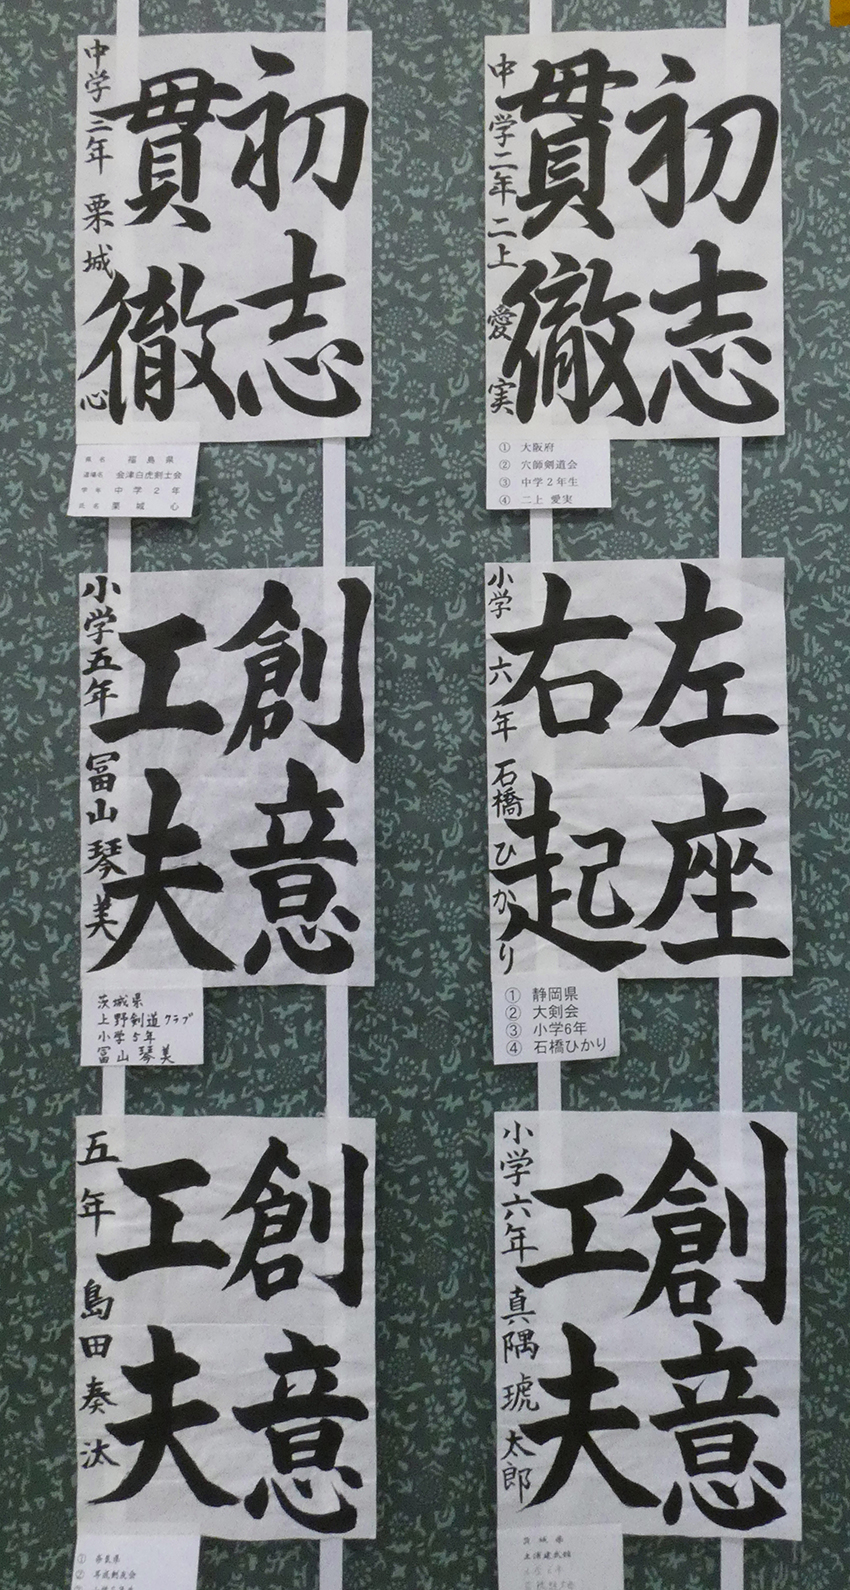 初志
貫徹
中学二年 二上 愛実
① 大阪府
② 穴師剣道会
③ 中学2年生
④ 二上 愛実
初志
貫徹
中学三年 栗城 心
県名 福島県
道場名 会津白虎剣士会
学年 中学2年
氏名 栗城 心
左座
右起
小学六年 石橋ひかり
① 静岡県
② 大剣会
③ 小学6年
④ 石橋ひかり
創意
工夫
小学五年 冨山琴美
茨城県
上野剣道クラブ
小学5年
冨山琴美
創意
工夫
小学六年 真隅琥太郎
茨城県
土浦建武館
創意
工夫
五年 島田奏汰
① 奈良県
② 耳成剣友会